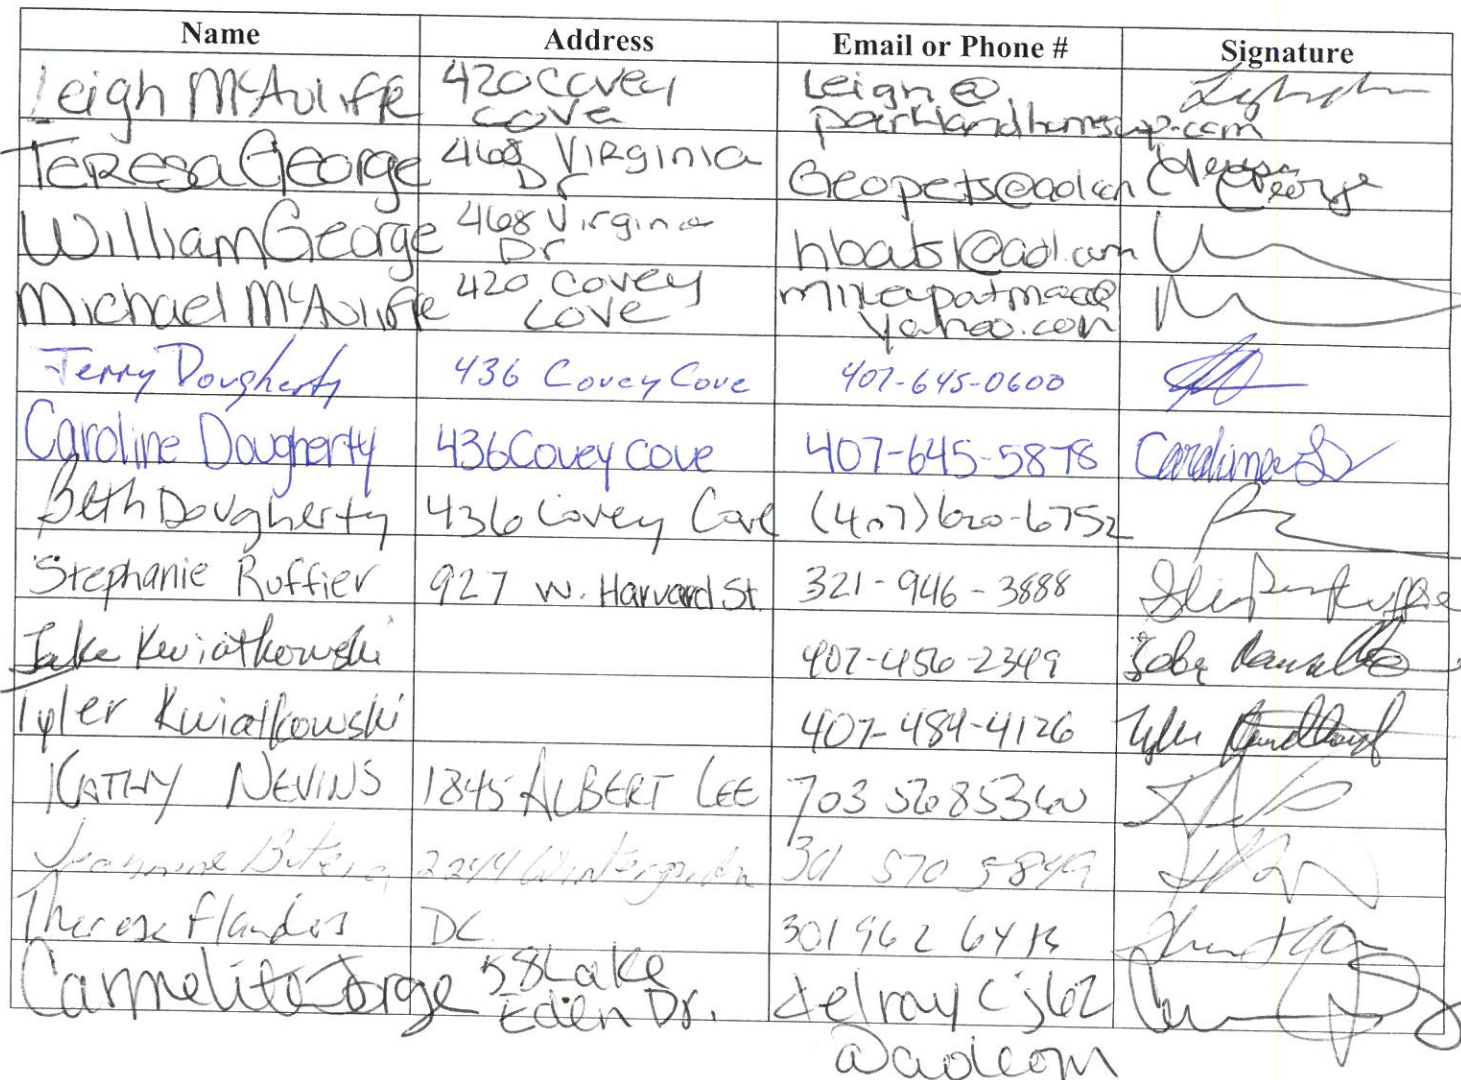 Name Address Email or Phone # Signature
Leigh McAuliffe 420 Covey Leigh@
Cove parklandhomescup.com
Teresa George 468 Virginia Geopets@aol.com Teresa
Dr George
William George 468 Virginia hboats1@aol.com
Dr
Michael McAuliffe 420 Covey
Cove yahoo.com
Jerry Dougherty 436 Covey Cove 407-645-0600
Caroline Dougherty 436 Covey Cove 407-645-5878 Caroline
Beth Dougherty 436 Covey Cove (407) 620-6752
Stephanie Ruffier 927 W. Harvard St. 321-946-3888
Jake Kwiatkowski 407-456-2349
Tyler Kwiatkowski 407-484-4126 Tyler
KATHY NEVINS 1845 ALBERT LEE 703 568 5360
Jeannine 2244 301 570 5849
Therese Flanders DC 301 962
Carmelita Jorge 58 Lake delraycj62
Eden Dr.
@aol.com